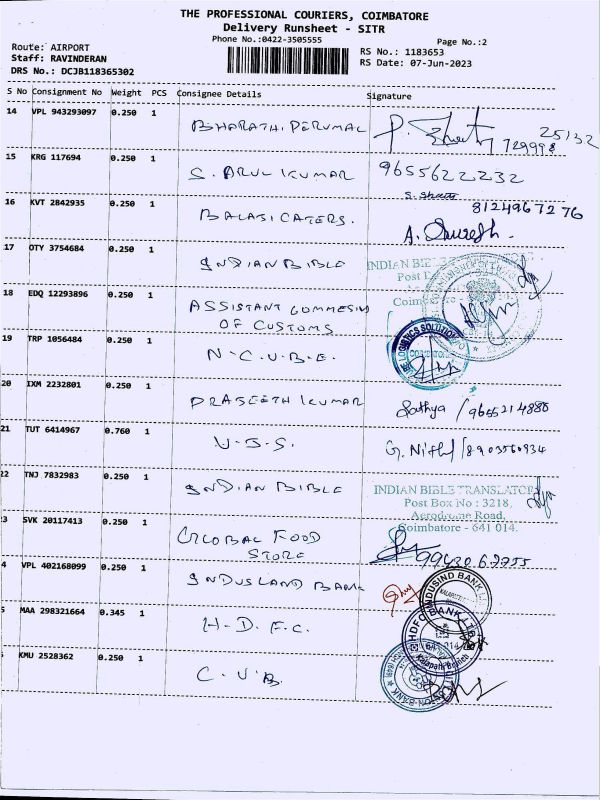 THE PROFESSIONAL COURIERS, COIMBATORE
Delivery Runsheet - SITR
Phone No.:0422-3505555
Page No.:2
Route: AIRPORT
Staff: RAVINDERAN
DRS No.: DCJB118365302
RS No.: 1183653
RS Date: 07-Jun-2023
S No Consignment No Weight PCS Consignee Details Signature
14 VPL 943293097 0.250 1 BHARATHI PERUMAL
25132
729998
15 KRG 117694 0.250 1 S. ARUL KUMAR 9655622232
16 KVT 2842935 0.250 1 BALAJI CATERS. 8124967276
A. Suresh.
17 OTY 3754684 0.250 1 INDIAN BIBLE INDIAN BIB
Post
Coimb
18 EDQ 12293896 0.250 1 ASSISTANT COMMESIN
OF CUSTOMS
19 TRP 1056484 0.250 1 N.C.U.B.E. LOGISTICS SOLUTION
20 IXM 2232801 0.250 1 PRAJEETH KUMAR Sathya / 9655214886
21 TUT 6414967 0.760 1 U.S.S. G. Nithy / 8903560934
22 TNJ 7832983 0.250 1 INDIAN BIBLE INDIAN BIBLE TRANSLATOR
Post Box No : 3218,
Aerodrome Road,
Coimbatore - 641 014.
3 SVK 20117413 0.250 1 GLOBAL FOOD
STORE
4 VPL 402168099 0.250 1 INDUSLAND BANK INDUSIND BANK
MAA 298321664 0.345 1 H.D.F.C. HDFC BANK LTD
Kalapatti Branch
KMU 2528362 0.250 1 C.U.B.